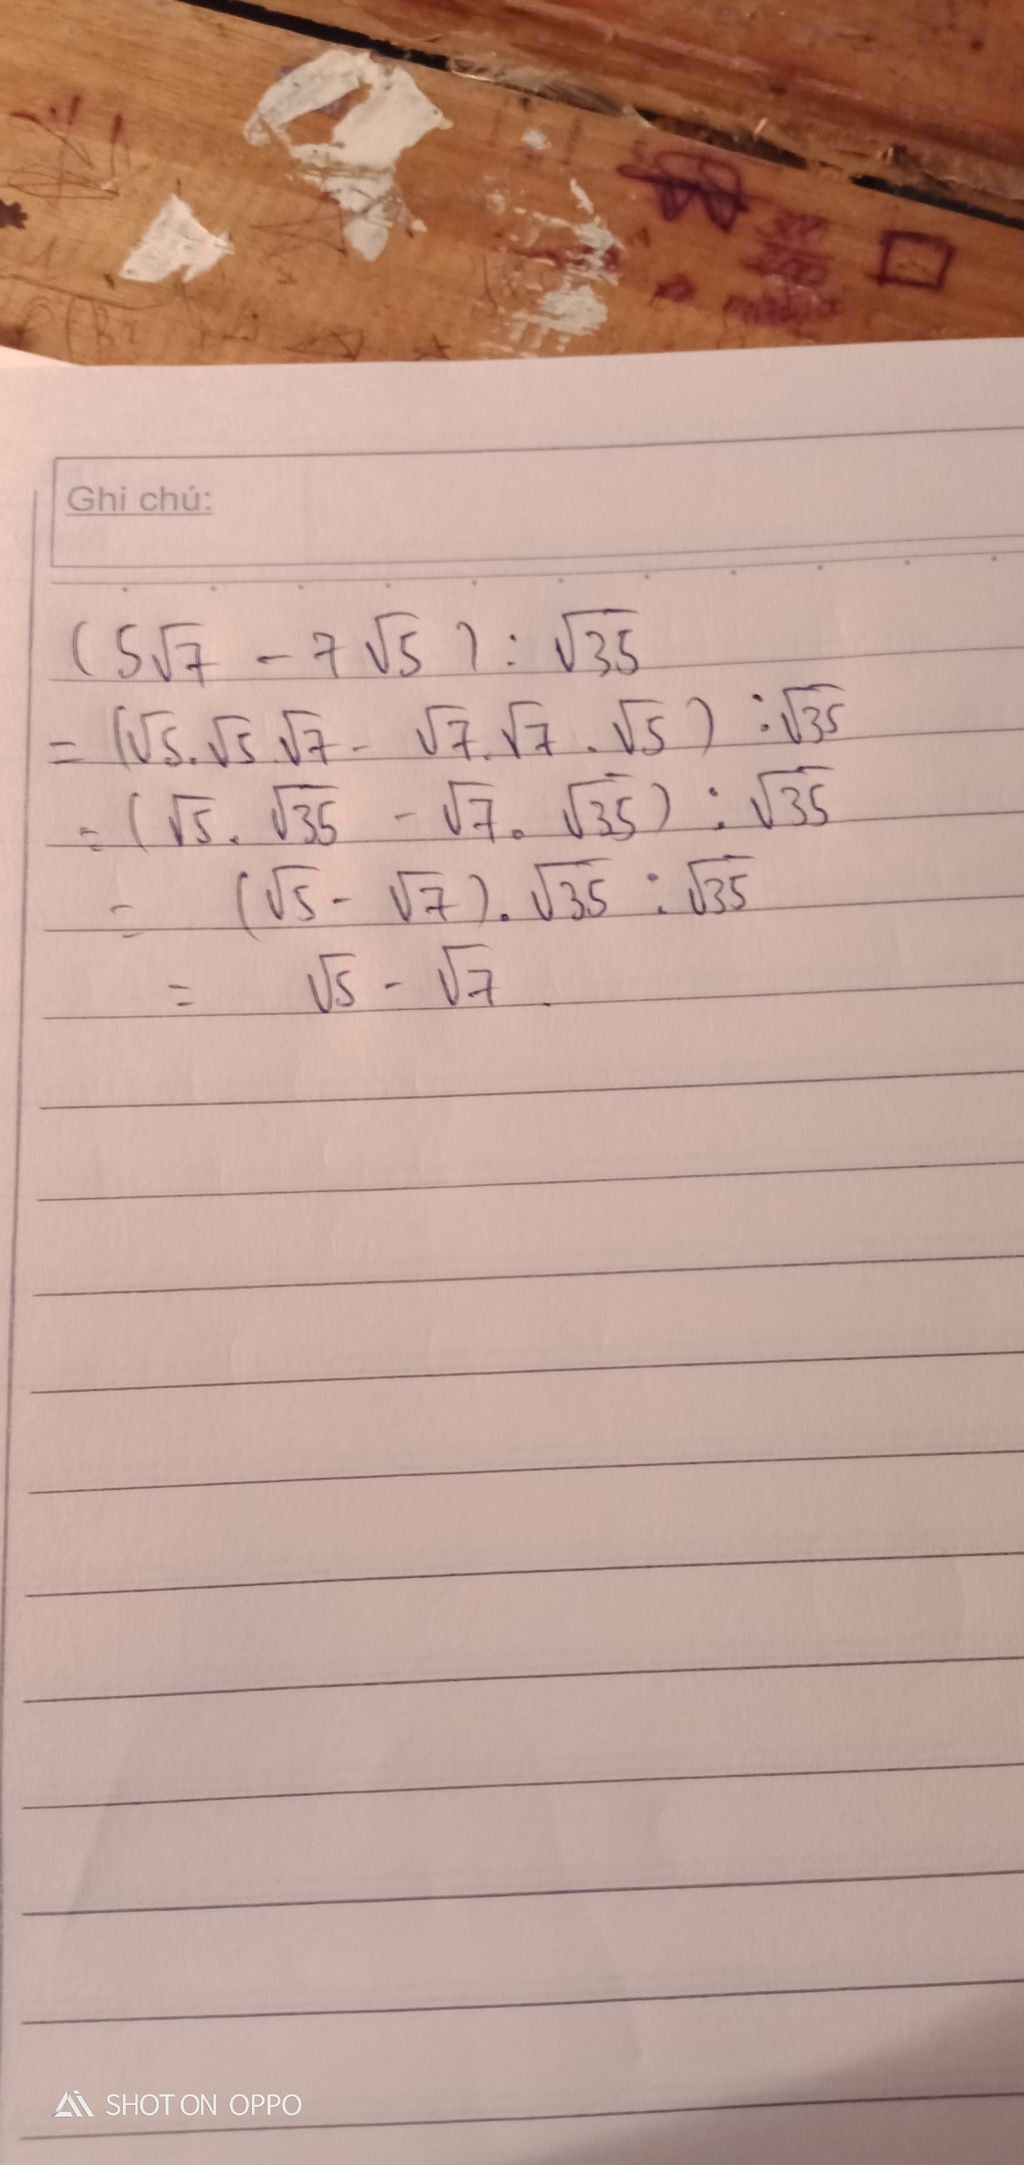 Ghi chú:
(5√7 - 7√5) : √35
= (√5.√5.√7 - √7.√7.√5) : √35
= (√5.√35 - √7.√35) : √35
= (√5 - √7).√35 : √35
= √5 - √7.
SHOT ON OPPO